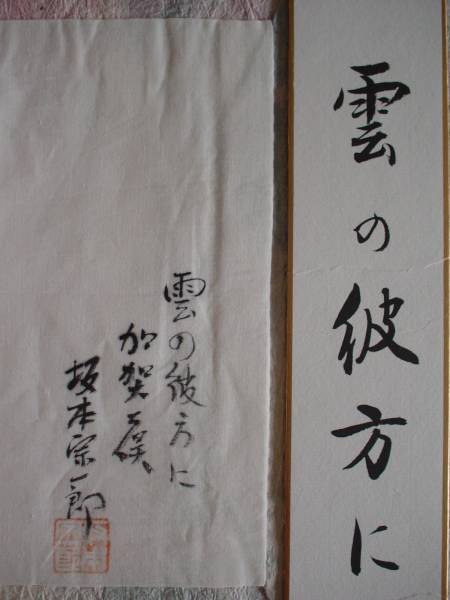 雲の彼方に
雲の彼方に
加賀
坂本宗一郎